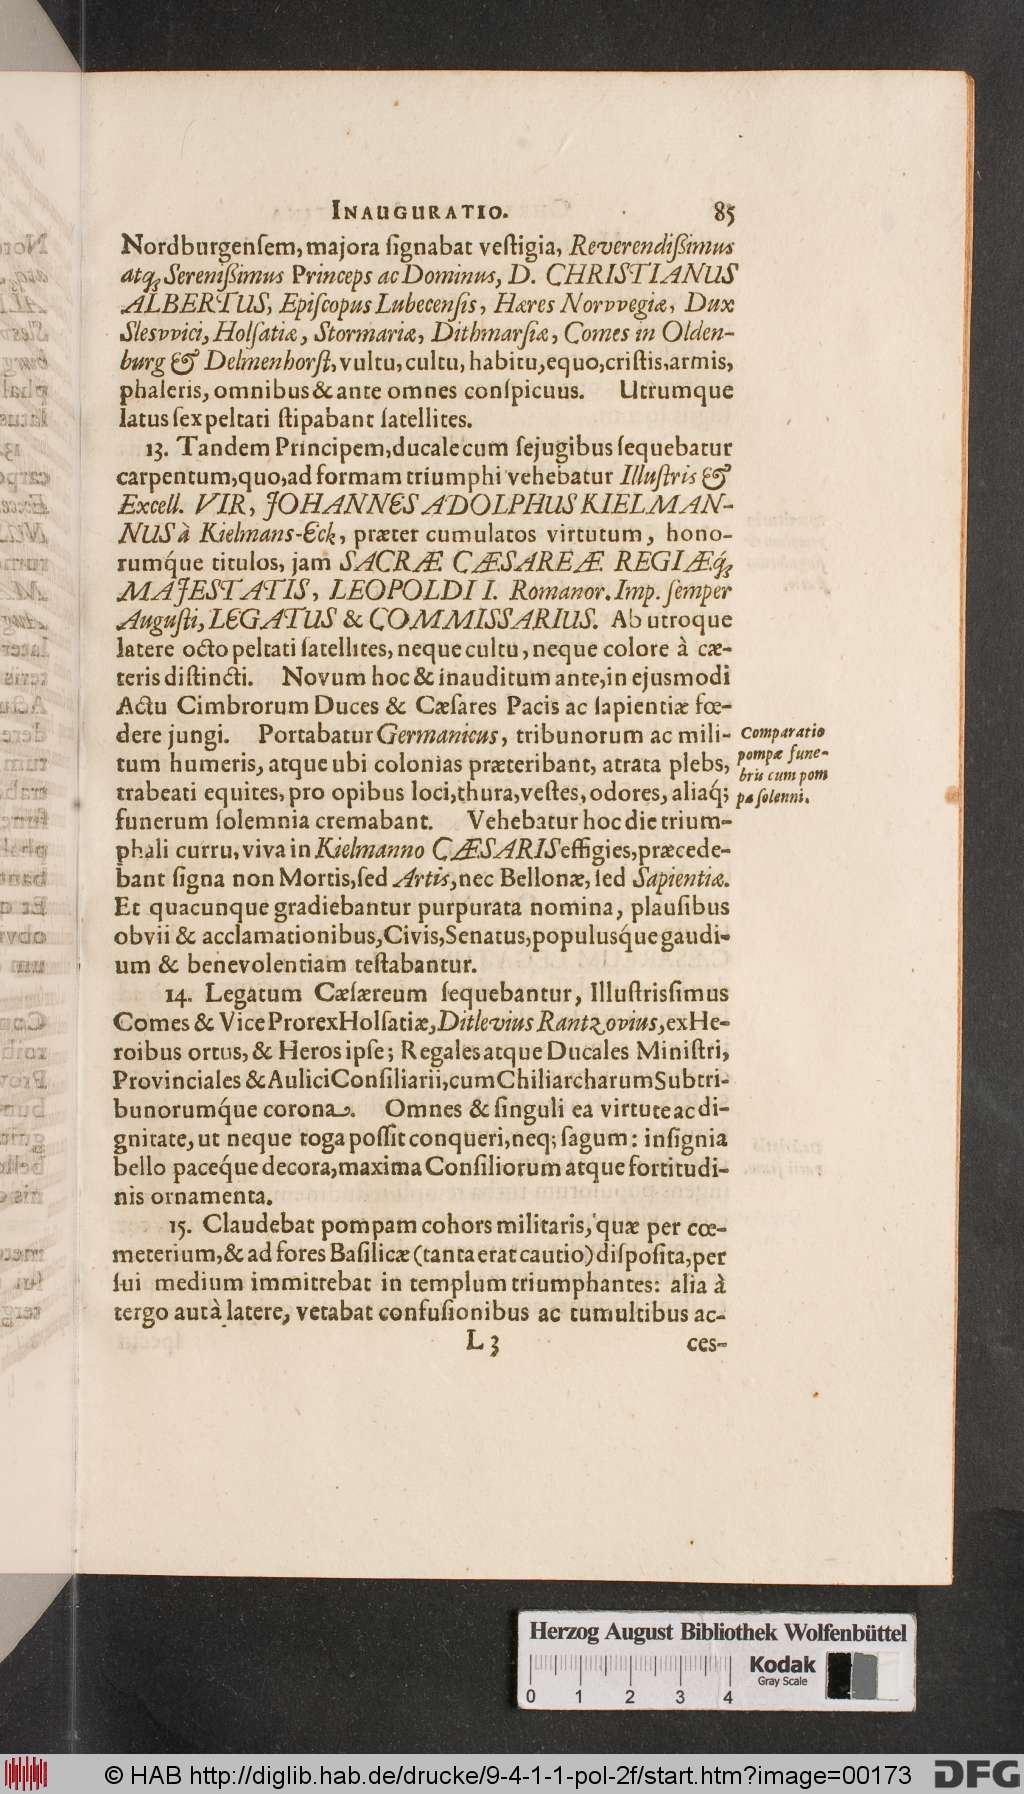 INAUGURATIO. 85
Nordburgenſem, majora ſignabat veſtigia, Reverendißimus
atq́ꝫ Sereniſſimus Princeps ac Dominus, D. CHRISTIANUS
ALBERTUS, Epiſcopus Lubecenſis, Hæres Norvvegiæ, Dux
Slesvvici, Holſatiæ, Stormariæ, Dithmarſiæ, Comes in Olden-
burg & Delmenhorſt, vultu, cultu, habitu, equo, criſtis, armis,
phaleris, omnibus & ante omnes conſpicuus. Utrumque
latus ſex peltati ſtipabant ſatellites.
13. Tandem Principem, ducale cum ſejugibus ſequebatur
carpentum, quo, ad formam triumphi vehebatur Illuſtris &
Excell. VIR, JOHANNES ADOLPHUS KIELMAN-
NUS à Kielmans-Eck, præter cumulatos virtutum, hono-
rumq́ue titulos, jam SACRÆ CÆSAREÆ REGIÆq́ꝫ
MAJESTATIS, LEOPOLDI I. Romanor. Imp. ſemper
Auguſti, LEGATUS & COMMISSARIUS. Ab utroque
latere octo peltati ſatellites, neque cultu, neque colore à cæ-
teris diſtincti. Novum hoc & inauditum ante, in ejusmodi
Actu Cimbrorum Duces & Cæſares Pacis ac ſapientiæ fœ-
dere jungi. Portabatur Germanicus, tribunorum ac mili-
tum humeris, atque ubi colonias præteribant, atrata plebs,
trabeati equites, pro opibus loci, thura, veſtes, odores, aliaq́;
funerum ſolemnia cremabant. Vehebatur hoc die trium-
phali curru, viva in Kielmanno CÆSARIS effigies, præcede-
bant ſigna non Mortis, ſed Artis, nec Bellonæ, ſed Sapientiæ.
Et quacunque gradiebantur purpurata nomina, plauſibus
obvii & acclamationibus, Civis, Senatus, populusq́ue gaudi-
um & benevolentiam teſtabantur.
Comparatio
pompæ fune-
bris cum pom
pa ſolenni.
14. Legatum Cæſæreum ſequebantur, Illuſtrisſimus
Comes & Vice Prorex Holſatiæ, Ditlevius Rantzovius, ex He-
roibus ortus, & Heros ipſe; Regales atque Ducales Miniſtri,
Provinciales & Aulici Conſiliarii, cum Chiliarcharum Subtri-
bunorumq́ue corona. Omnes & ſinguli ea virtute ac di-
gnitate, ut neque toga poſſit conqueri, neq; ſagum: inſignia
bello paceq́ue decora, maxima Conſiliorum atque fortitudi-
nis ornamenta.
15. Claudebat pompam cohors militaris, quæ per cœ-
meterium, & ad fores Baſilicæ (tanta erat cautio) diſpoſita, per
ſui medium immittebat in templum triumphantes: alia à
tergo aut à latere, vetabat confuſionibus ac tumultibus ac-
L 3 ces-
Herzog August Bibliothek Wolfenbüttel
Kodak
Gray Scale
0 1 2 3 4
© HAB http://diglib.hab.de/drucke/9-4-1-1-pol-2f/start.htm?image=00173
DFG